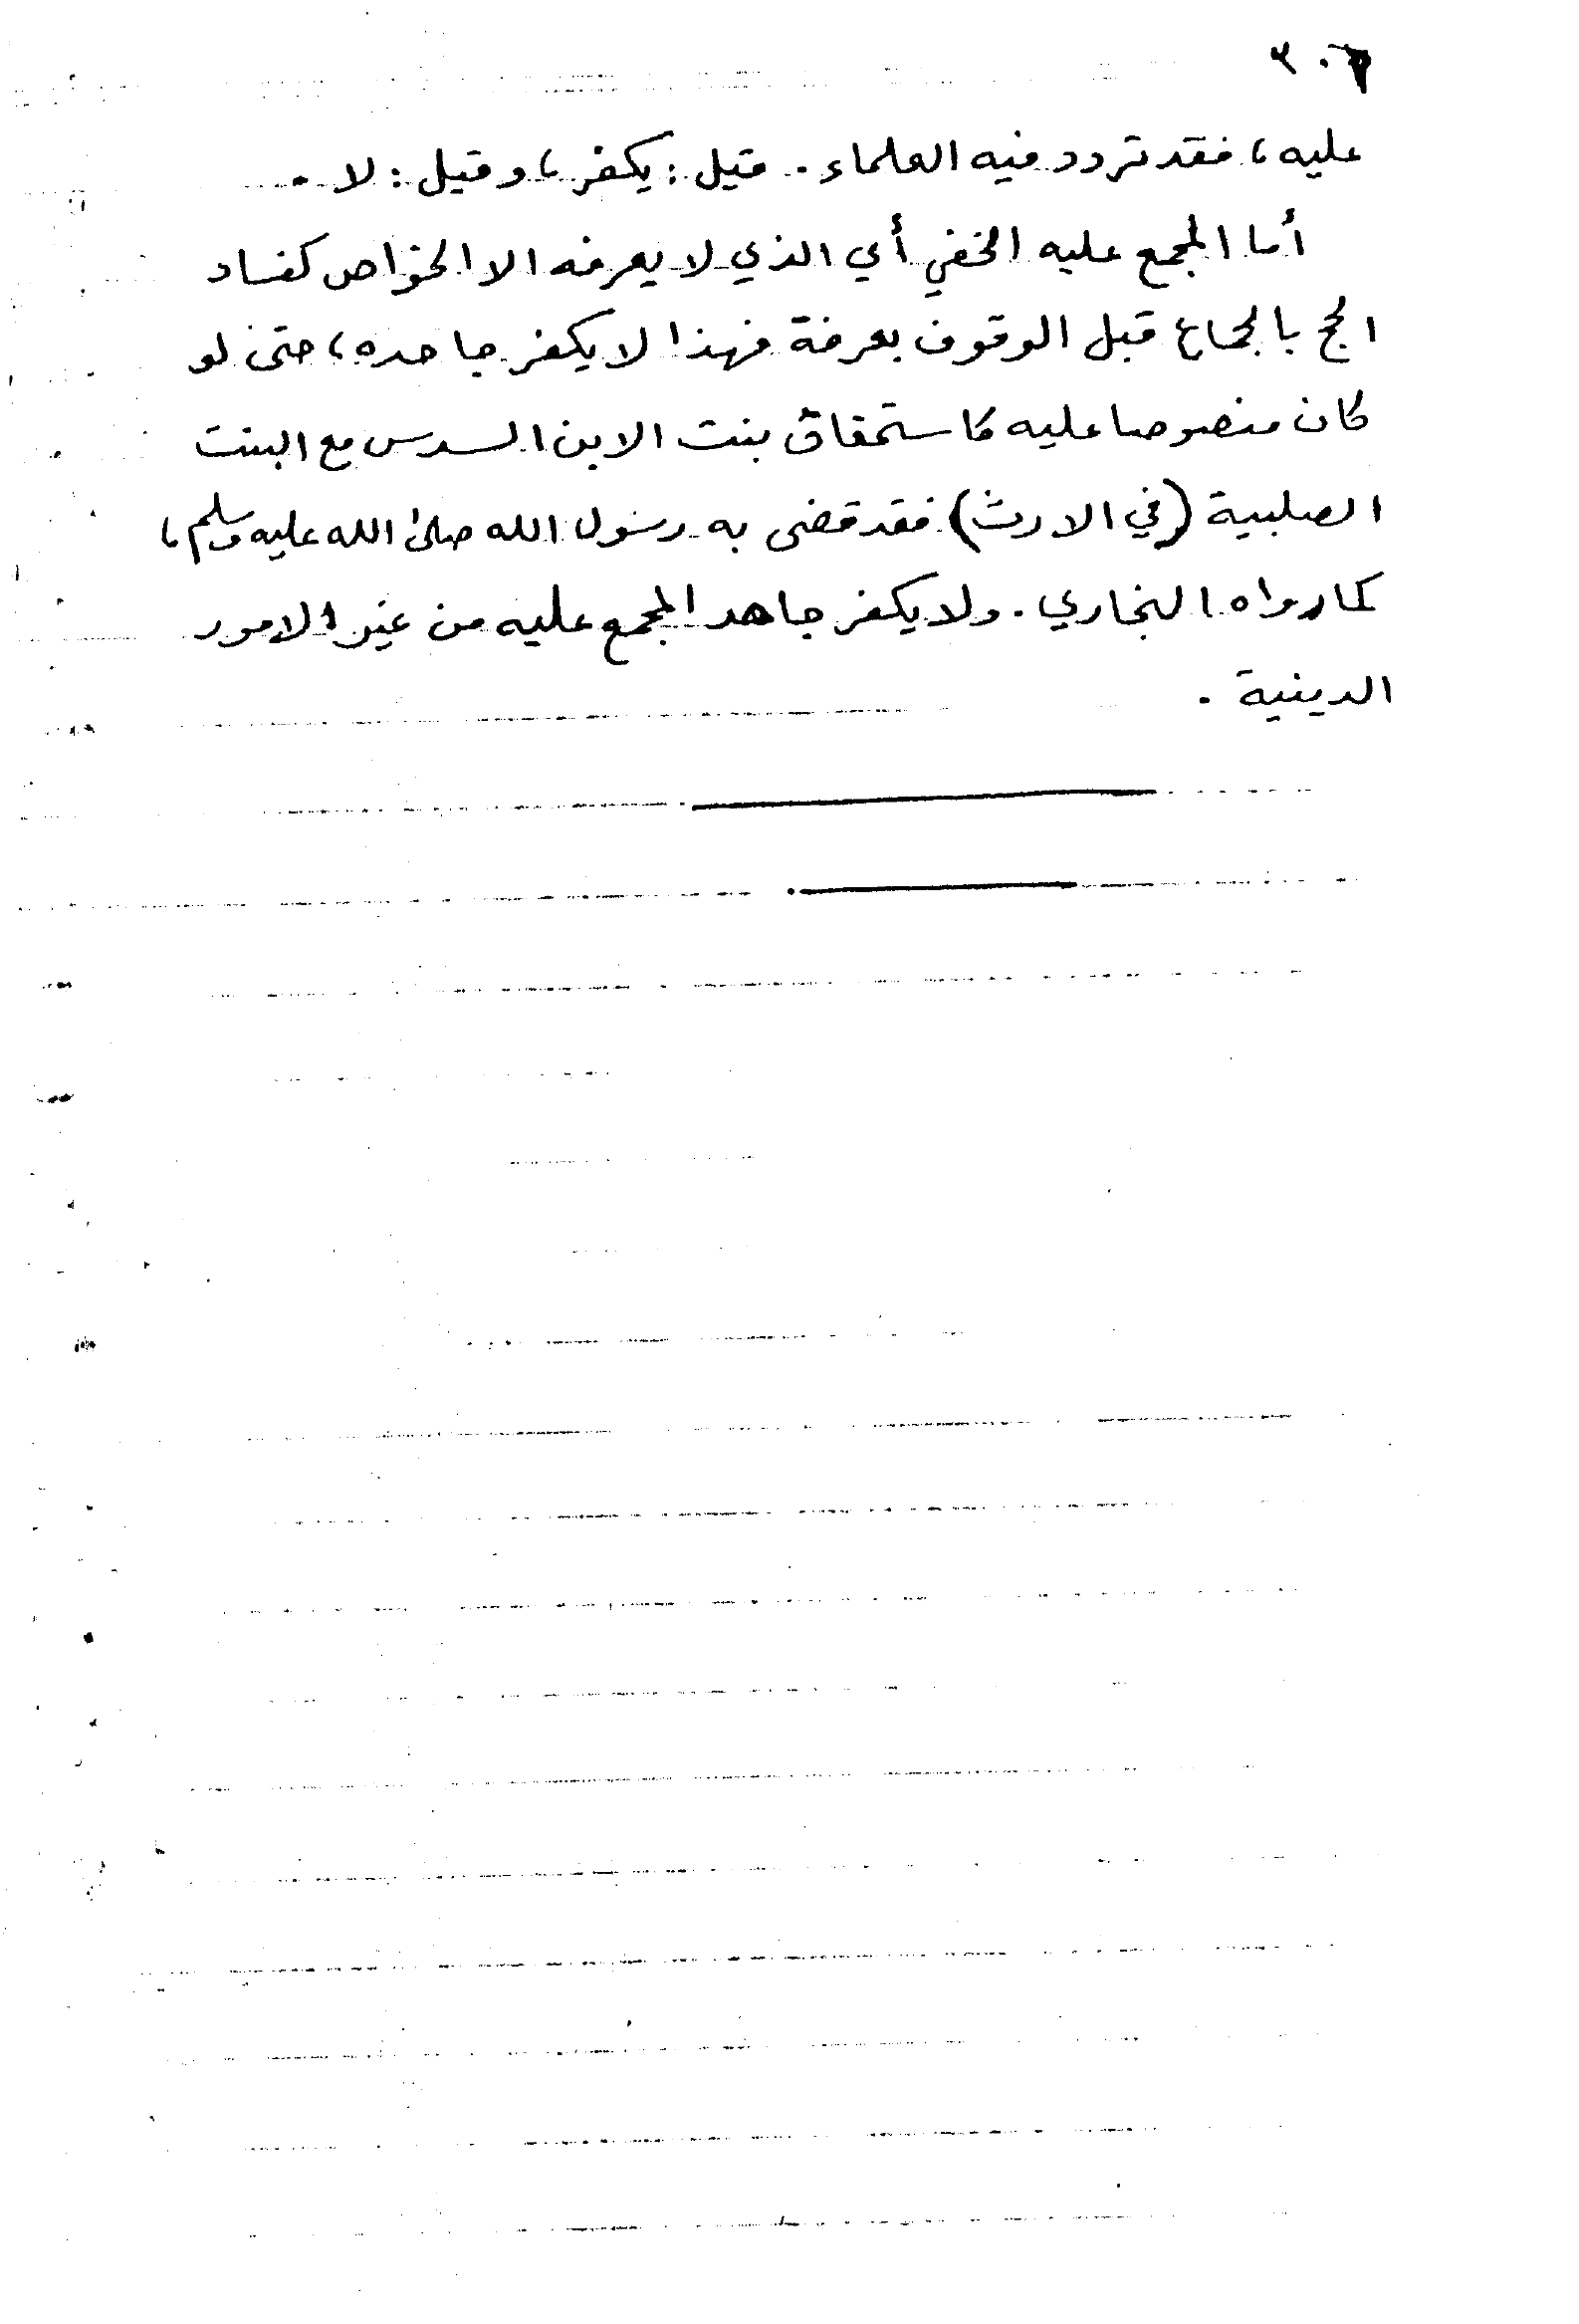 عليه، فقد تردد فيه العلماء. قيل: يكفر، وقيل: لا.
أما المجمع عليه الخفي أي الذي لا يعرفه الا الخواص كفساد
الحج بالجماع قبل الوقوف بعرفة فهذا لا يكفر جاحده، حتى لو
كان منصوصا عليه كاستحقاق بنت الابن السدس مع البنت
الصلبية (في الارث) فقد قضى به رسول الله صلى الله عليه وسلم،
كما رواه البخاري. ولا يكفر جاهد المجمع عليه من غير الامور
الدينية.